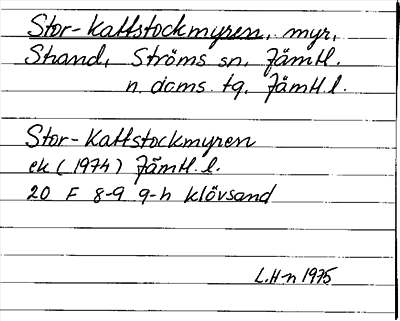 Stor-Kattstockmyren, myr,
Strand, Ströms sn, Jämtl.
n. doms. tg, Jämtl. l.
Stor-Kattstockmyren
ek (1974) Jämtl. l.
20 F 8-9 g-h Klövsand
L.H-n 1975